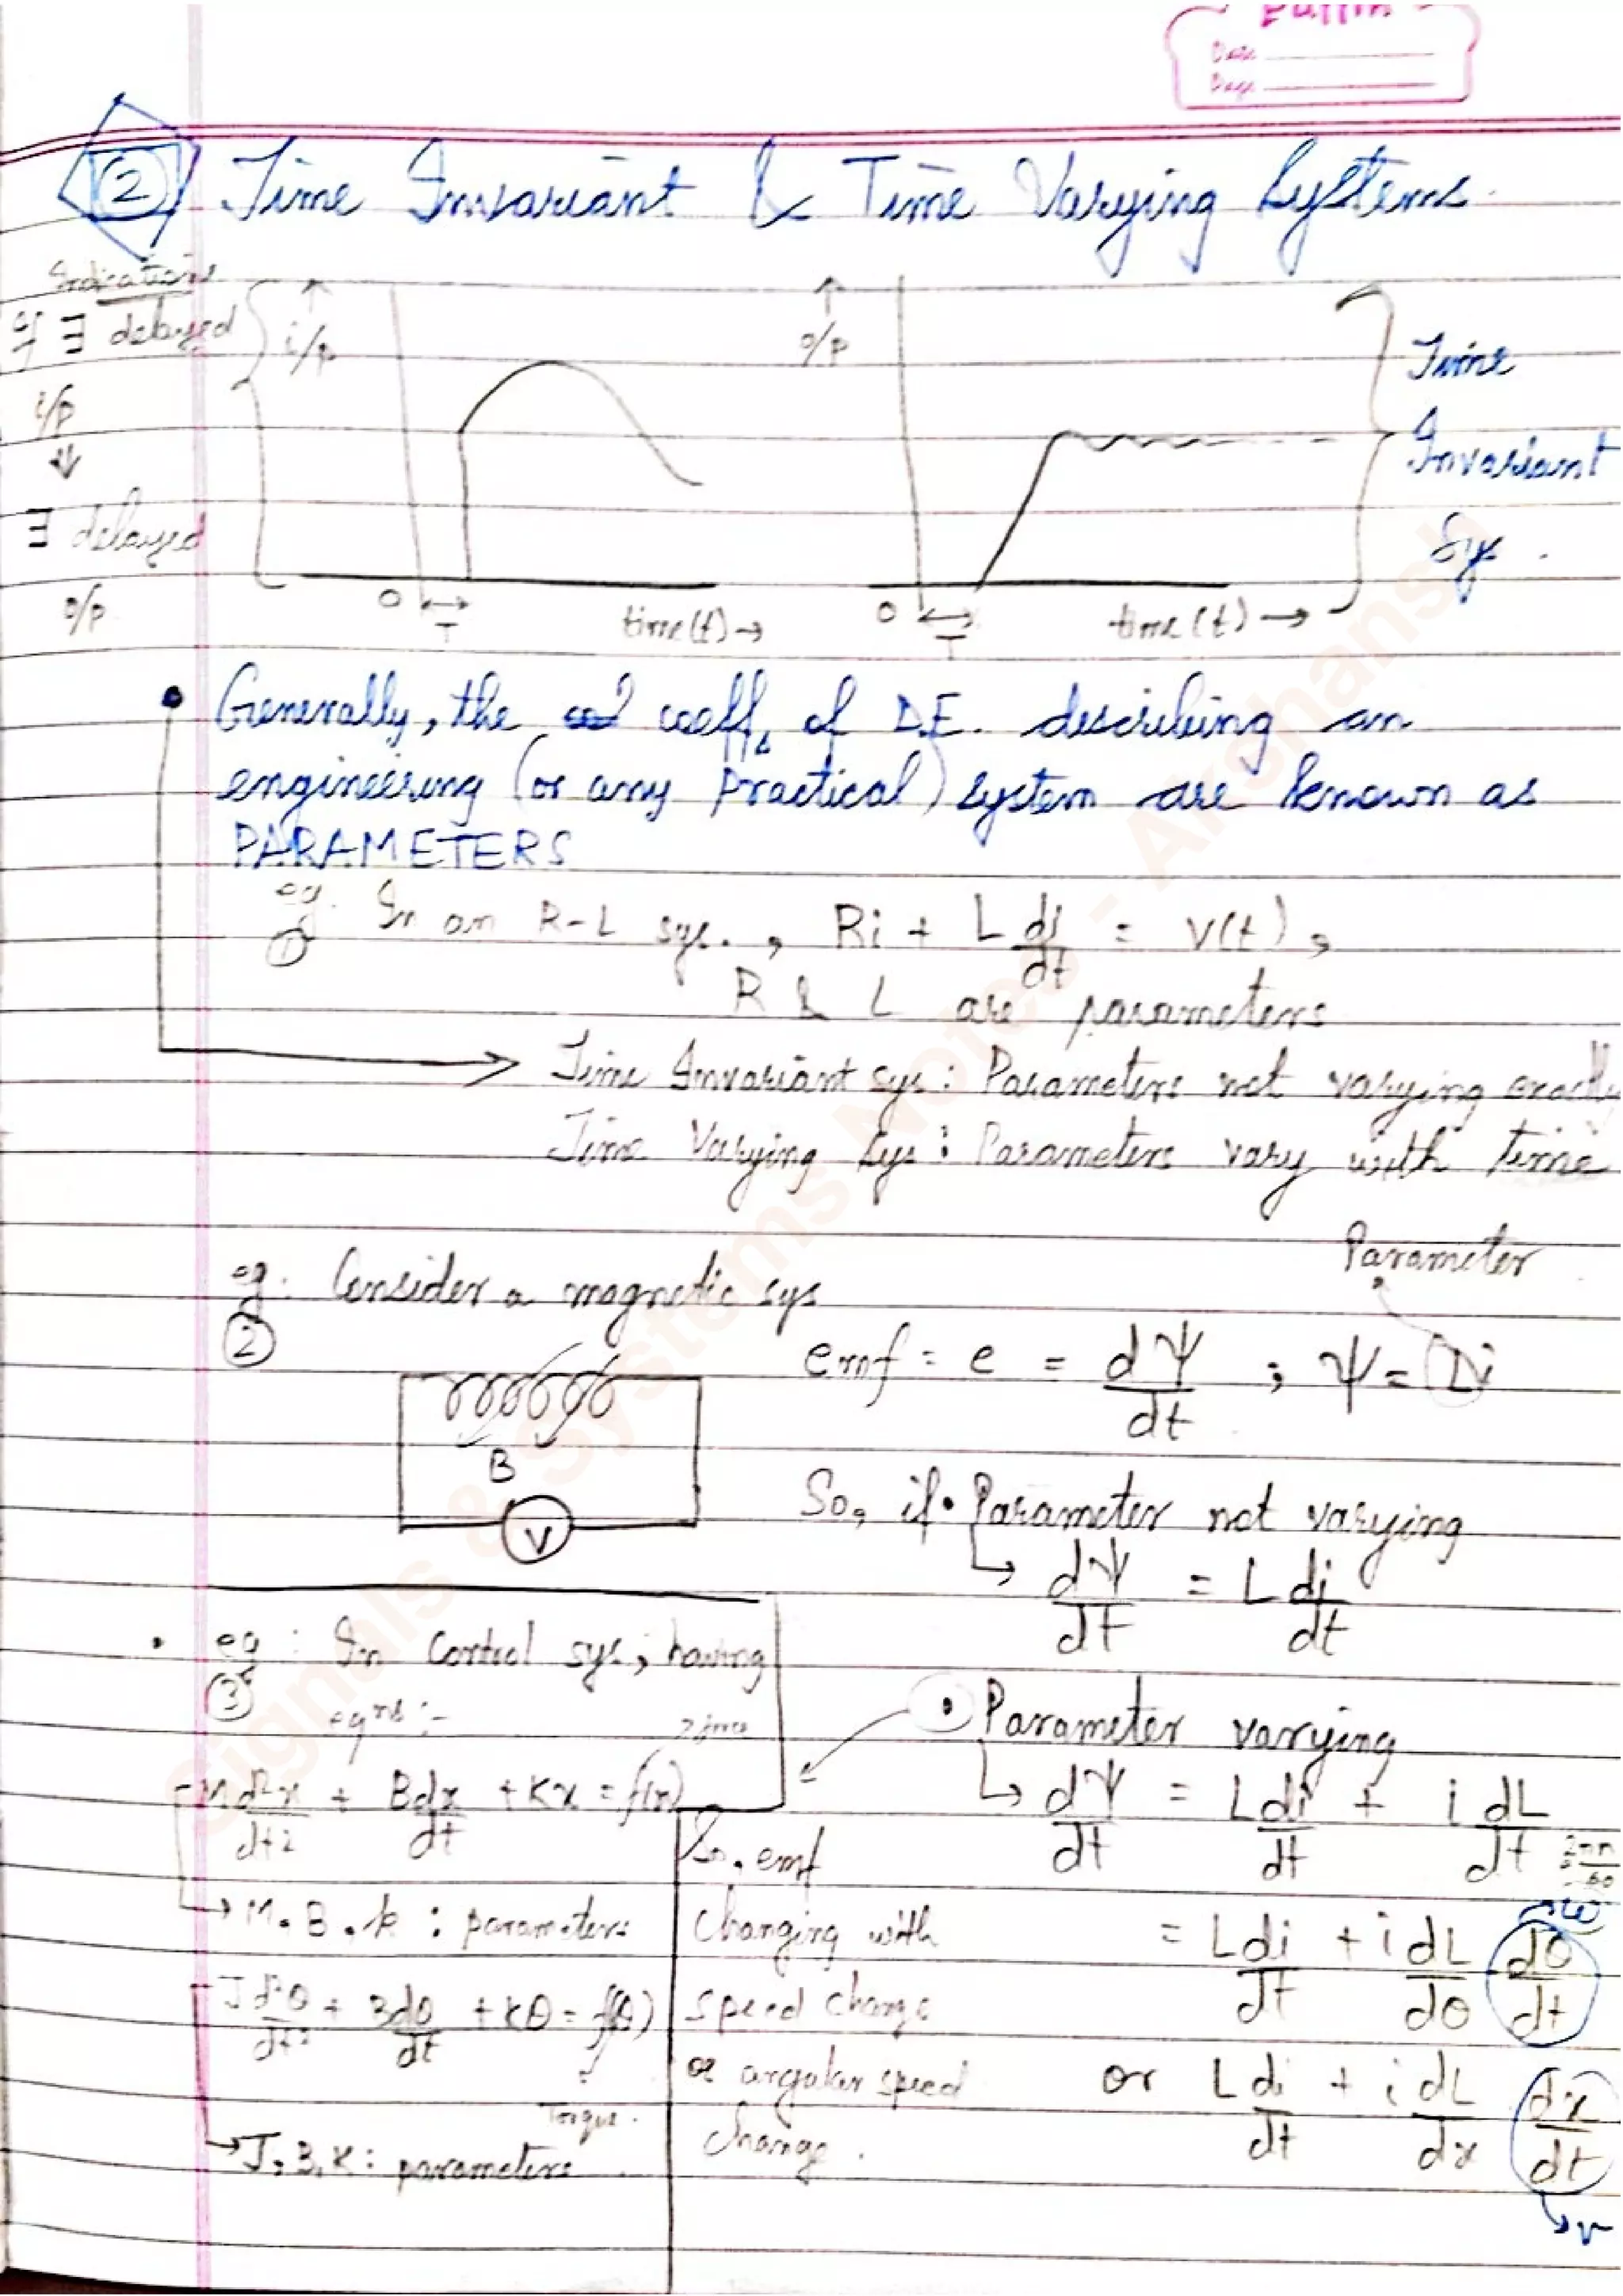 Date
Page
② Time Invariant & Time Varying Systems.
Indications
if ∃ delayed
i/p
⇓
∃ delayed
o/p
i/p
0
T
time(t) →
o/p
0
T
time (t) →
Time
Invariant
Sys.
• Generally, the coeff. of D.E. describing an
engineering (or any Practical) system are known as
PARAMETERS
eg. ① In an R-L sys., Ri + L di/dt = v(t),
R & L are parameters
→ Time Invariant sys: Parameters not varying exactly
Time Varying Sys: Parameters vary with time
eg. ② Consider a magnetic sys
B
V
Parameter
emf = e = dΨ/dt ; Ψ = Li
So, if • Parameter not varying
↳ dΨ/dt = L di/dt
• Parameter varying
↳ dΨ/dt = L di/dt + i dL/dt
2πn/60
ω
= L di/dt + i dL/dθ dθ/dt
or L di/dt + i dL/dx dx/dt
↘ v
So, emf
changing with
speed change
or angular speed
change.
• eg: ③ In Control sys, having
eqns :-
M d²x/dt² + B dx/dt + Kx = f(x)
→ M, B, k : parameters
J d²θ/dt² + B dθ/dt + Kθ = f(θ)
Torque.
→ J, B, K : parameters
Signals & Systems Notes - Akshansh